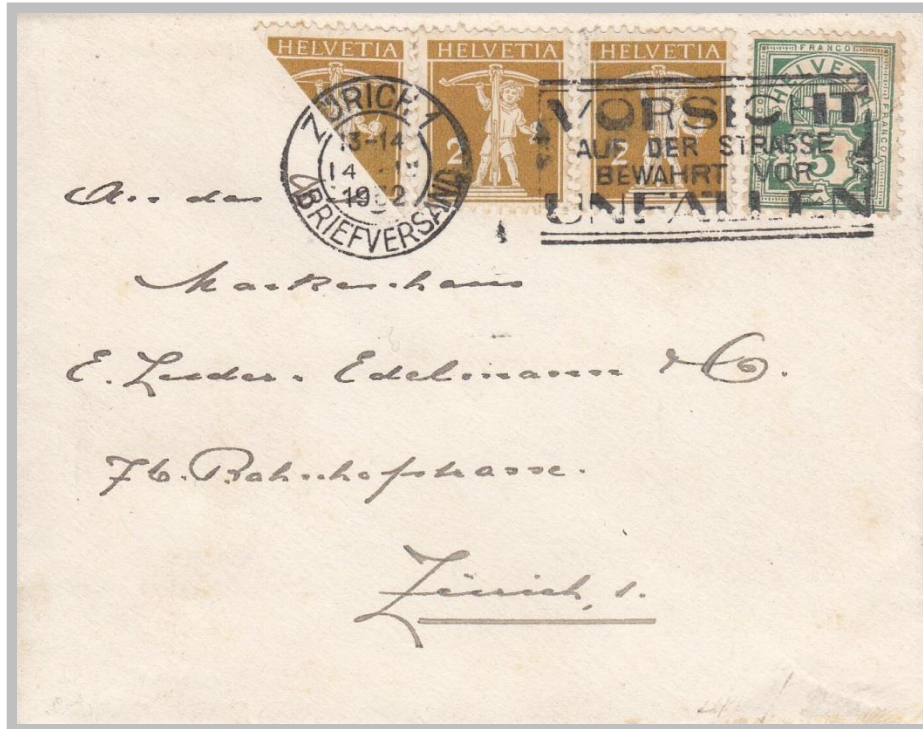 HELVETIA HELVETIA HELVETIA FRANCO
HELVETIA
FRANCO
2 2 5
ZÜRICH 1
13-14
14
1932
BRIEFVERSAND
VORSICHT
AUF DER STRASSE
BEWAHRT VOR
UNFÄLLEN
An das
Markenhaus
E. Luder-Edelmann & Co.
76. Bahnhofstrasse.
Zürich, 1.